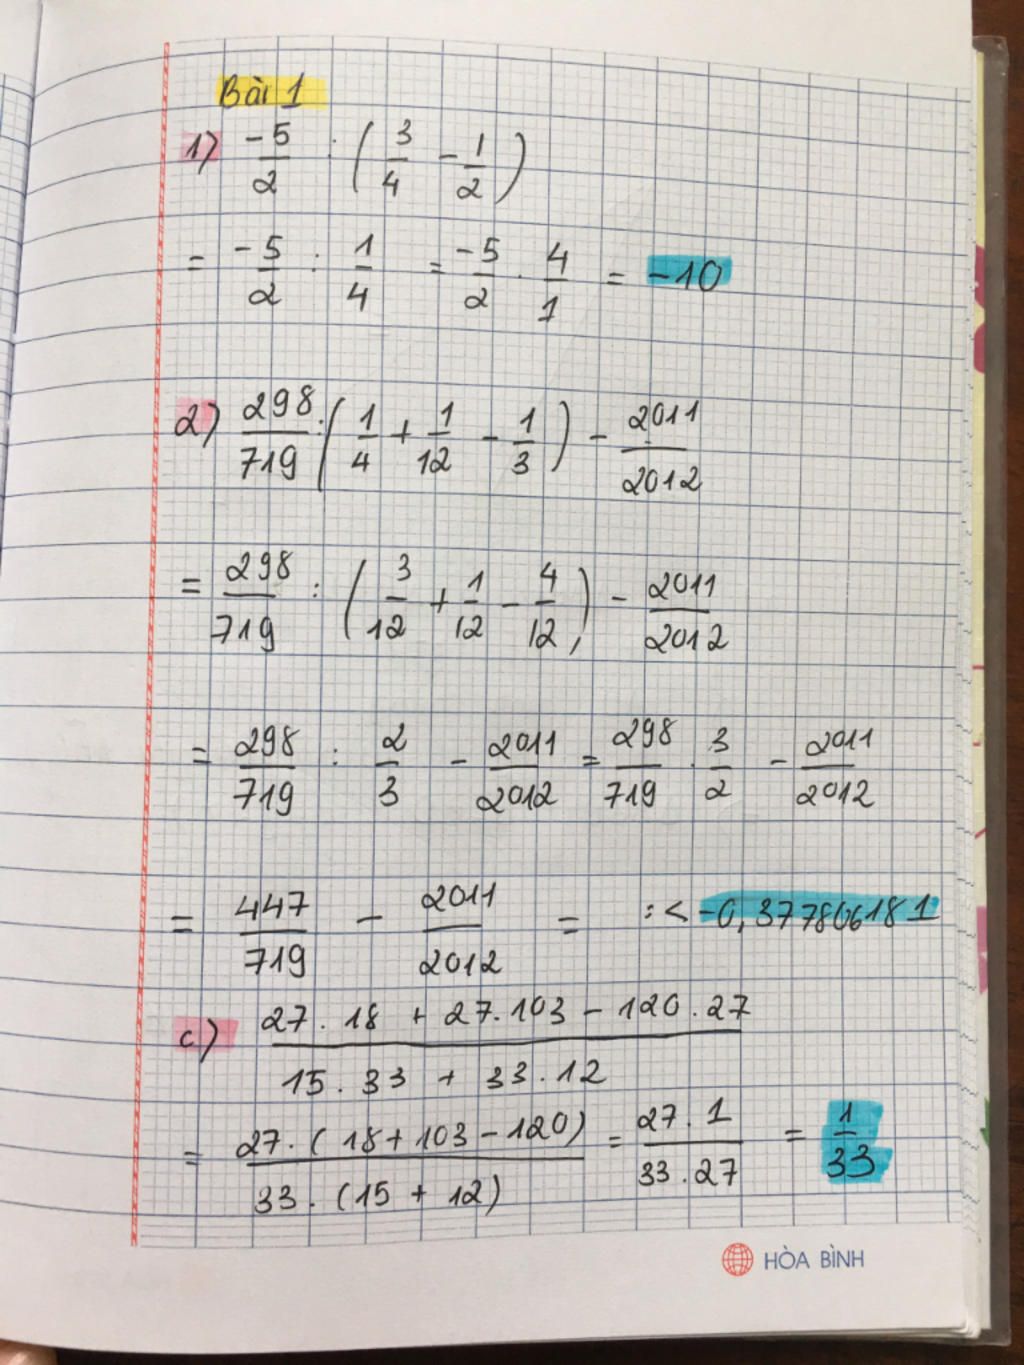 Bài 1
1) -5/2 : (3/4 - 1/2)
= -5/2 : 1/4 = -5/2 . 4/1 = -10
2) 298/719 : (1/4 + 1/12 - 1/3) - 2011/2012
= 298/719 : (3/12 + 1/12 - 4/12) - 2011/2012
= 298/719 : 2/3 - 2011/2012 = 298/719 . 3/2 - 2011/2012
= 447/719 - 2011/2012 = :< -0,377806181
c) (27.18 + 27.103 - 120.27)/(15.33 + 33.12)
= 27.(18+103-120)/33.(15 + 12) = 27.1/33.27 = 1/33
HÒA BÌNH